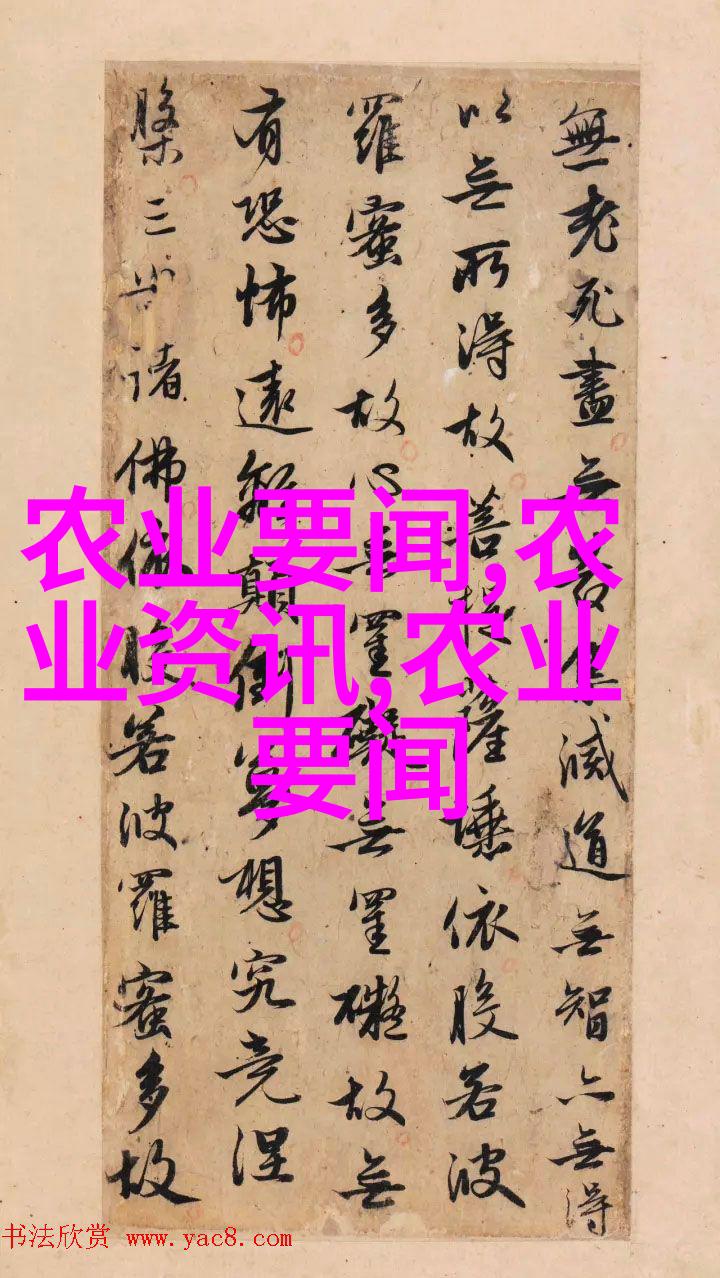 無老死盡无苦集滅道无智亦无得
以无所得故菩提薩埵依般若波
羅蜜多故心无罣礙无罣礙故无
有恐怖遠離顛倒夢想究竟涅
槃三世諸佛依般若波羅蜜多故
农业要闻,农
业资讯,农业
要闻
书法欣赏 www.yac8.com